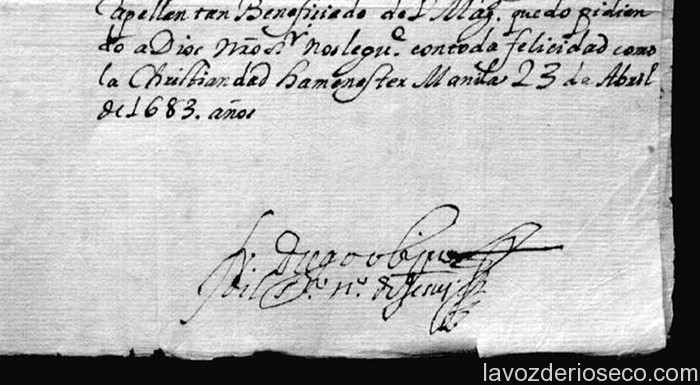 Capellan tan Beneficiado de V Mag.ᵈ quedo pidien
do a Dios Nr̃o S.ʳ nos le gu.ᵉ con toda felicidad como
la Christiandad ha menester Manila 23 de Abril
de 1683. años
lavozderioseco.com